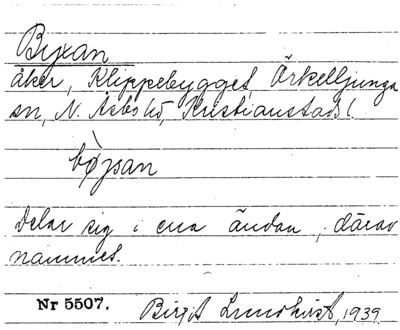 Byxan
åker, Klippebygget, Örkelljunga
sn, N. Åsbo hd, Kristianstads l.
Delar sig i ena ändan, därav
namnet.
Nr 5507. Birgit Lundkvist, 1939